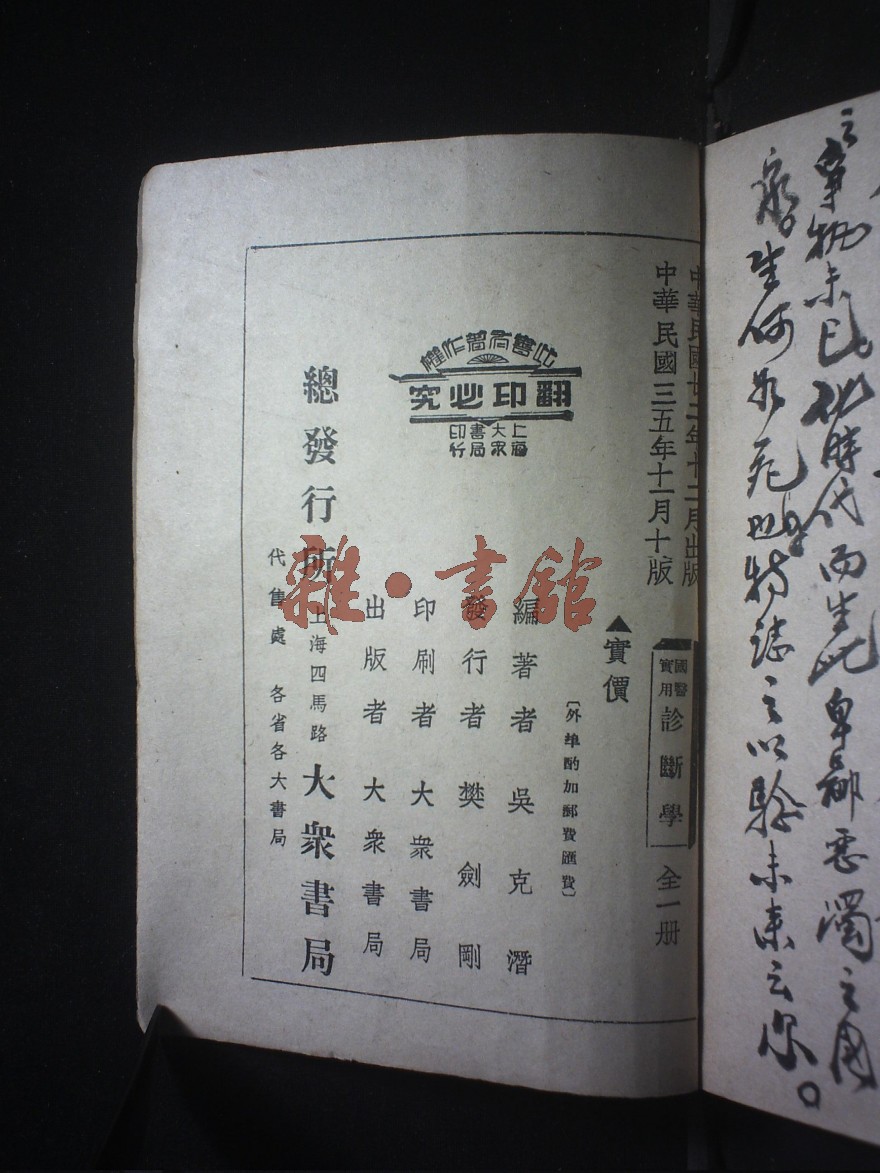 中華民國廿二年十二月出版
中華民國三五年十一月十版
國醫
實用
診斷學
全一册
▲實價
〔外埠酌加郵費匯費〕
編著者 吳克潛
發行者 樊劍剛
印刷者 大衆書局
出版者 大衆書局
總發行所 上海四馬路 大衆書局
代售處 各省各大書局
此書有著作權
翻印必究
上海
大衆
書局
印行
雜·書館
未已
時代而生此卑鄙惡濁之國
生何
死
特誌之以驗未來云爾。